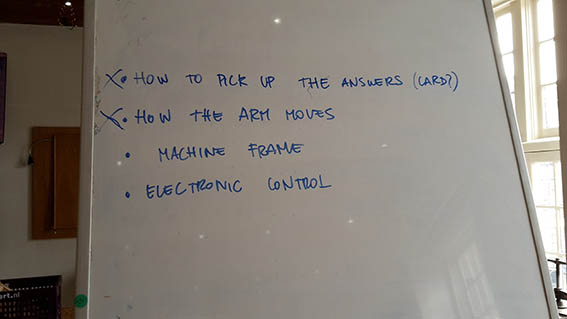 X • HOW TO PICK UP THE ANSWERS (CARD?)
X • HOW THE ARM MOVES
• MACHINE FRAME
• ELECTRONIC CONTROL
art.nl